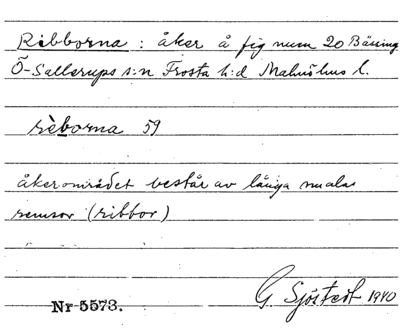 Ribborna : åker å fig num 20 Bäsinge
Ö-Sallerups s:n Frosta h:d Malmöhus l.
rèborna 59
åkerområdet består av långa smala
remsor (ribbor)
G. Sjöstedt 1940
Nr 5573.